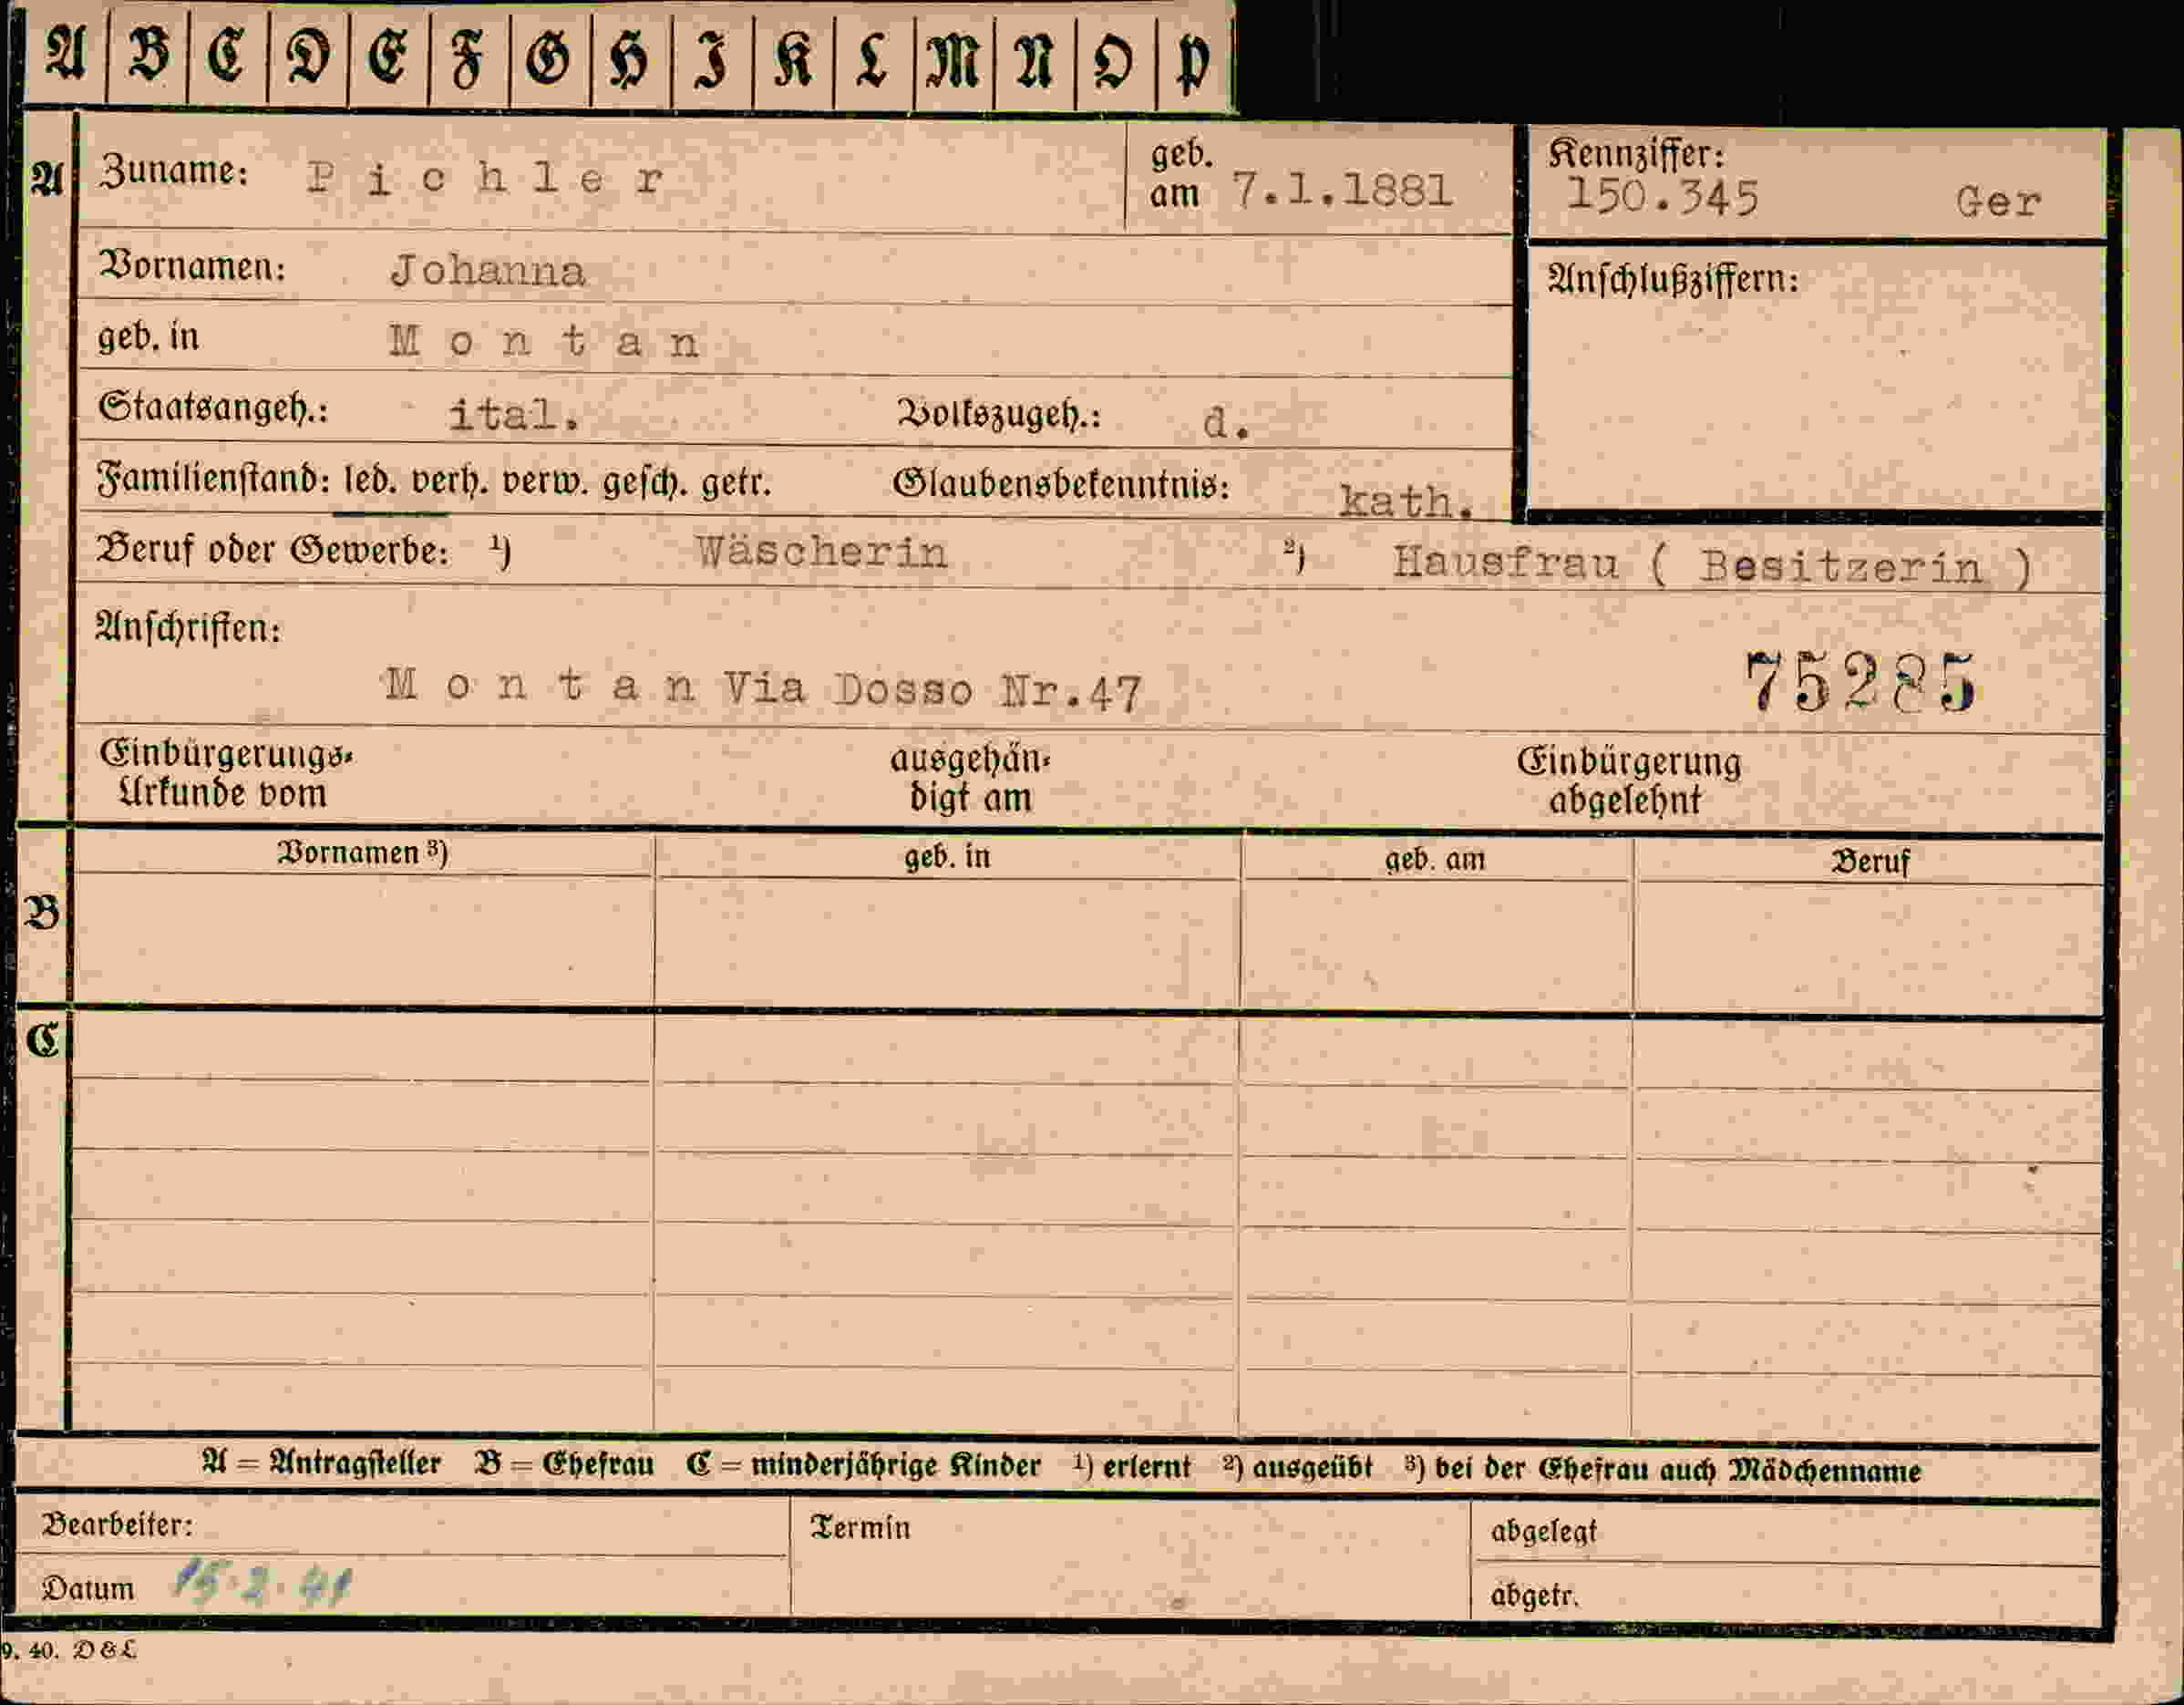 A B C D E F G H I K L M N O P
A Zuname: Pichler geb. am 7.1.1881 Kennziffer: 150.345 Ger
Vornamen: Johanna Anschlußziffern:
geb. in Montan
Staatsangeh.: ital. Volkszugeh.: d.
Familienstand: led. verh. verw. gesch. getr. Glaubensbekenntnis: kath.
Beruf oder Gewerbe: ¹) Wäscherin ²) Hausfrau ( Besitzerin )
Anschriften:
Montan Via Dosso Nr.47 75285
Einbürgerungs- ausgehän- Einbürgerung
Urkunde vom digt am abgelehnt
Vornamen ³) geb. in geb. am Beruf
B
C
A = Antragsteller B = Ehefrau C = minderjährige Kinder ¹) erlernt ²) ausgeübt ³) bei der Ehefrau auch Mädchenname
Bearbeiter: Termin abgelegt
Datum 15.2.41 abgetr.
9. 40. D & L